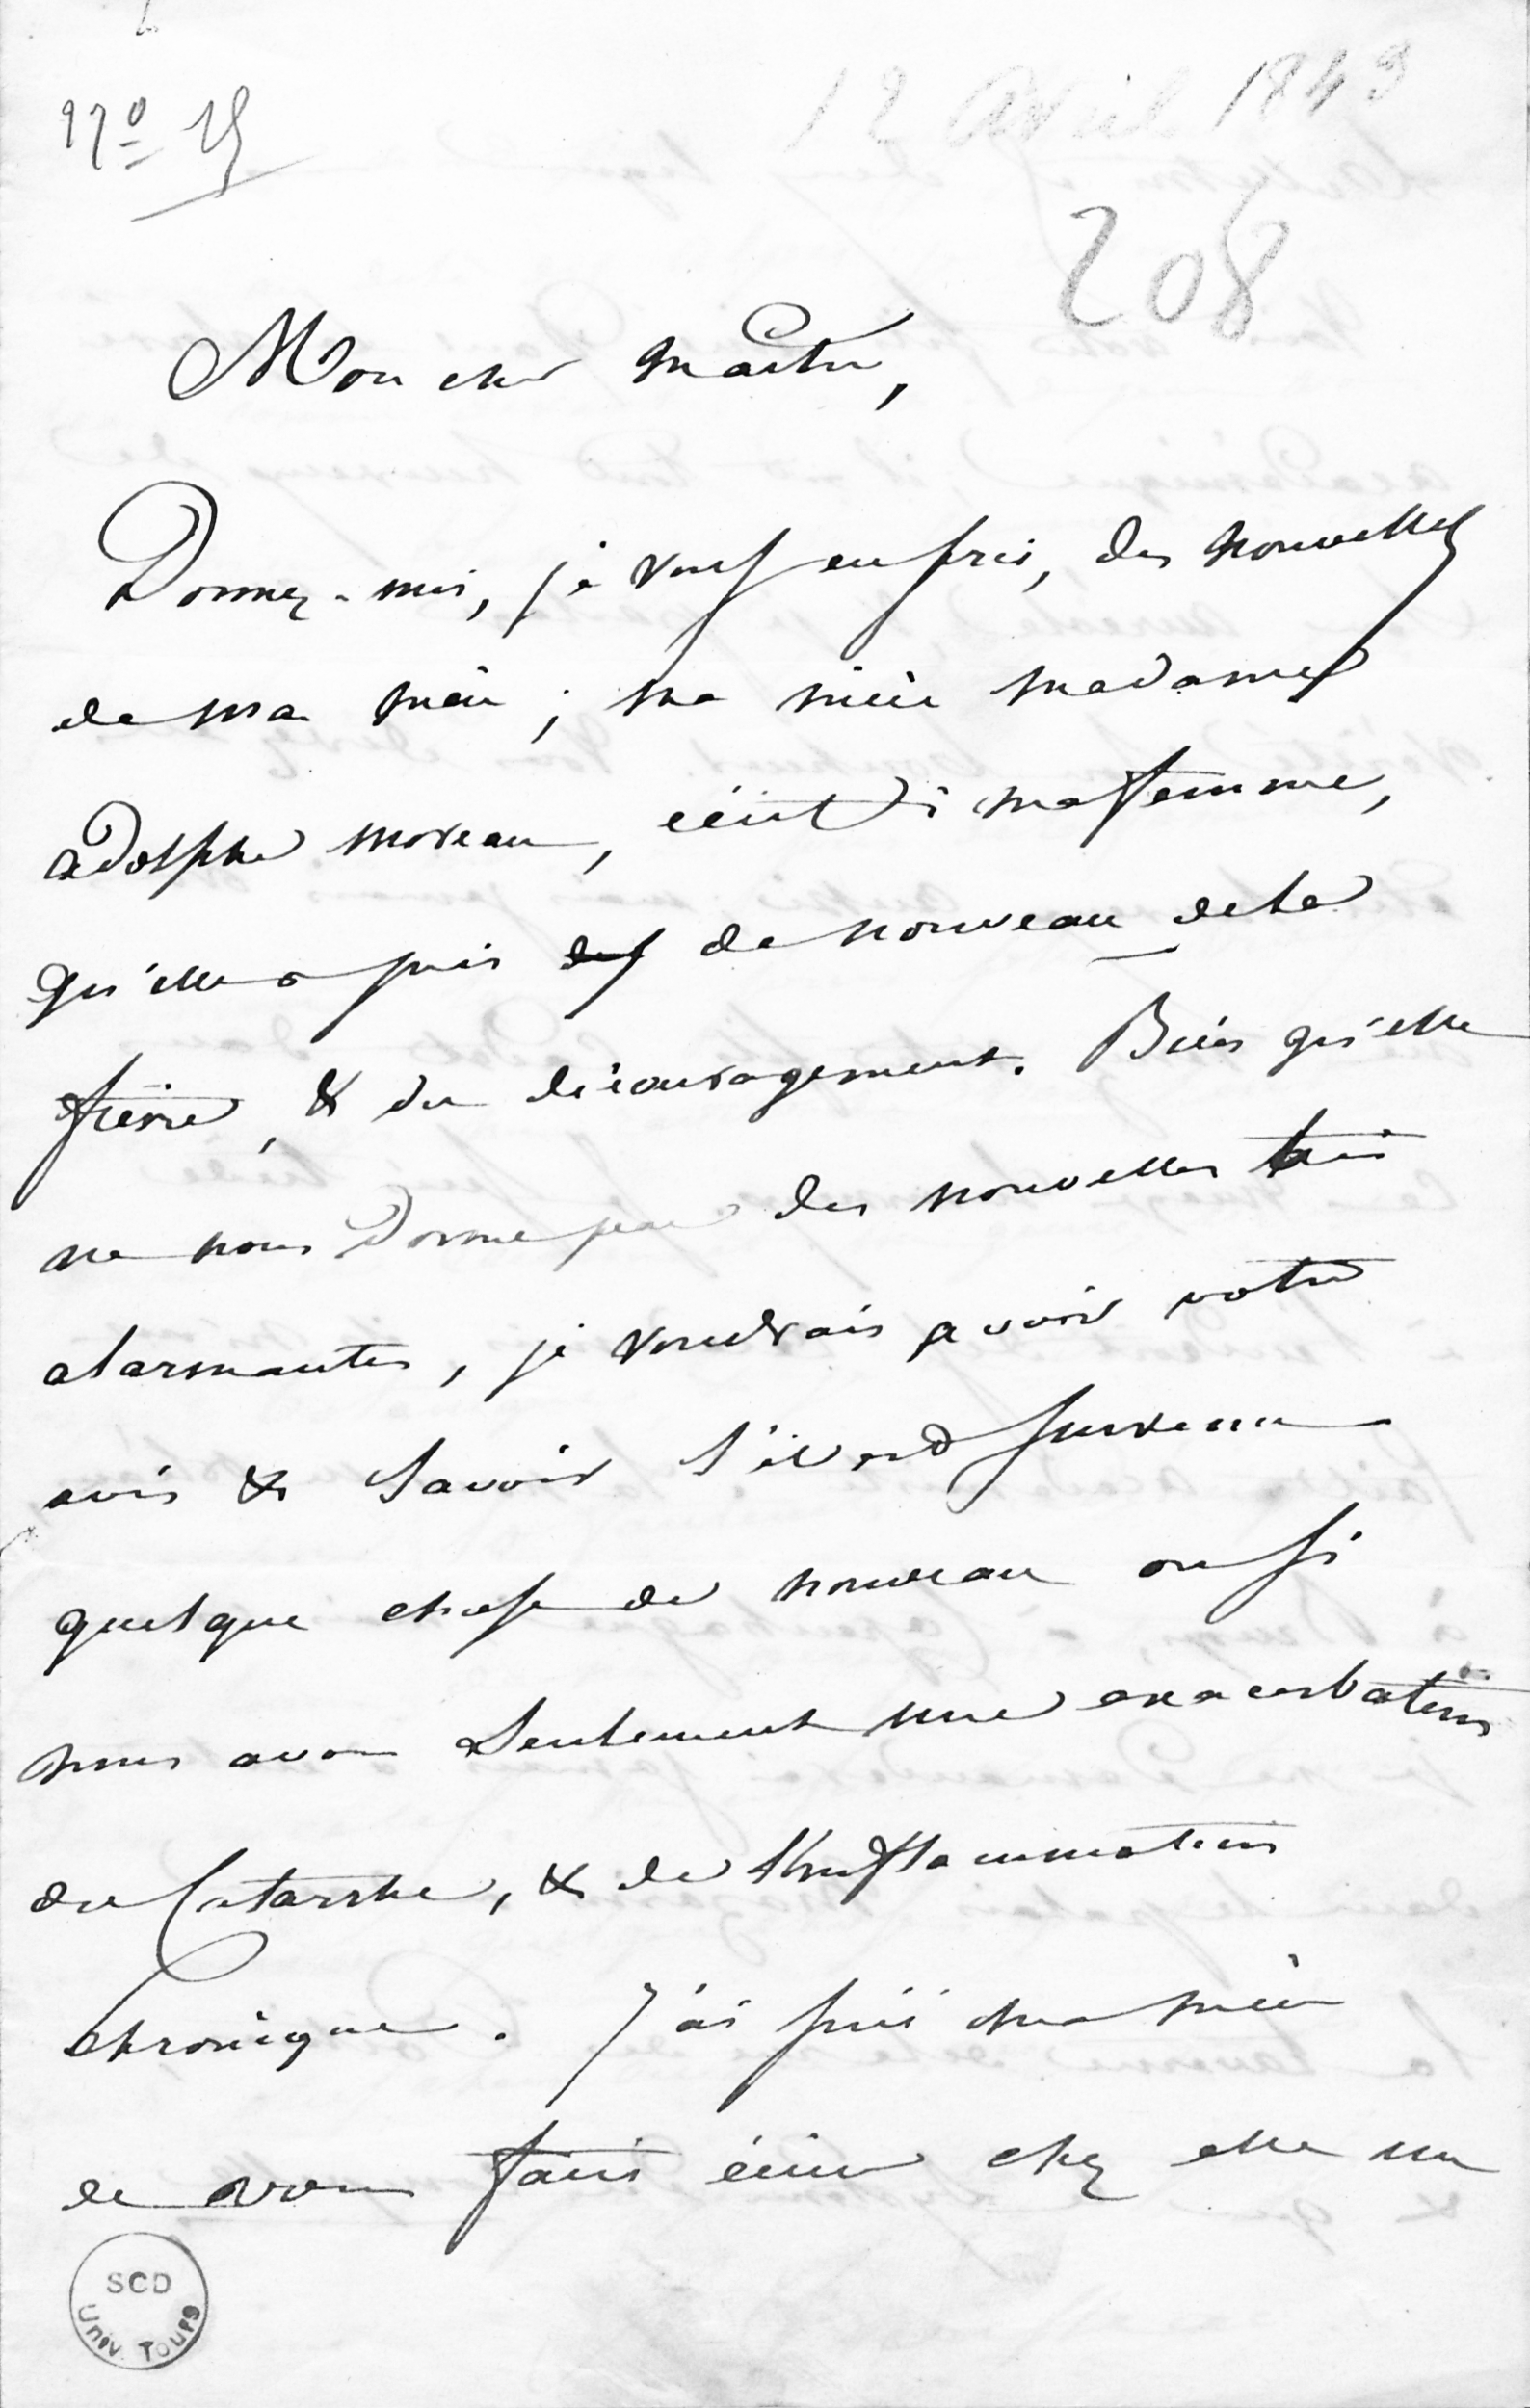 N° 15
12 avril 1849
208
Mon cher maître,
Donnez-moi, je vous en prie, des nouvelles
de ma mère ; ma nièce madame
adolphe moreau, écrit à ma femme,
qu'elle a pris des de nouveau de la
fièvre, & du découragement. Bien qu'elle
ne nous donne pas des nouvelles très
alarmantes, je voudrais avoir votre
avis & savoir s'il est survenu
quelque chose de nouveau ou si
nous avons seulement une exacerbation
du Catarrhe, & de l'inflammation
Chronique. J'ai prié ma mère
de vous faire écrire chez elle un
SCD
Univ. Tours